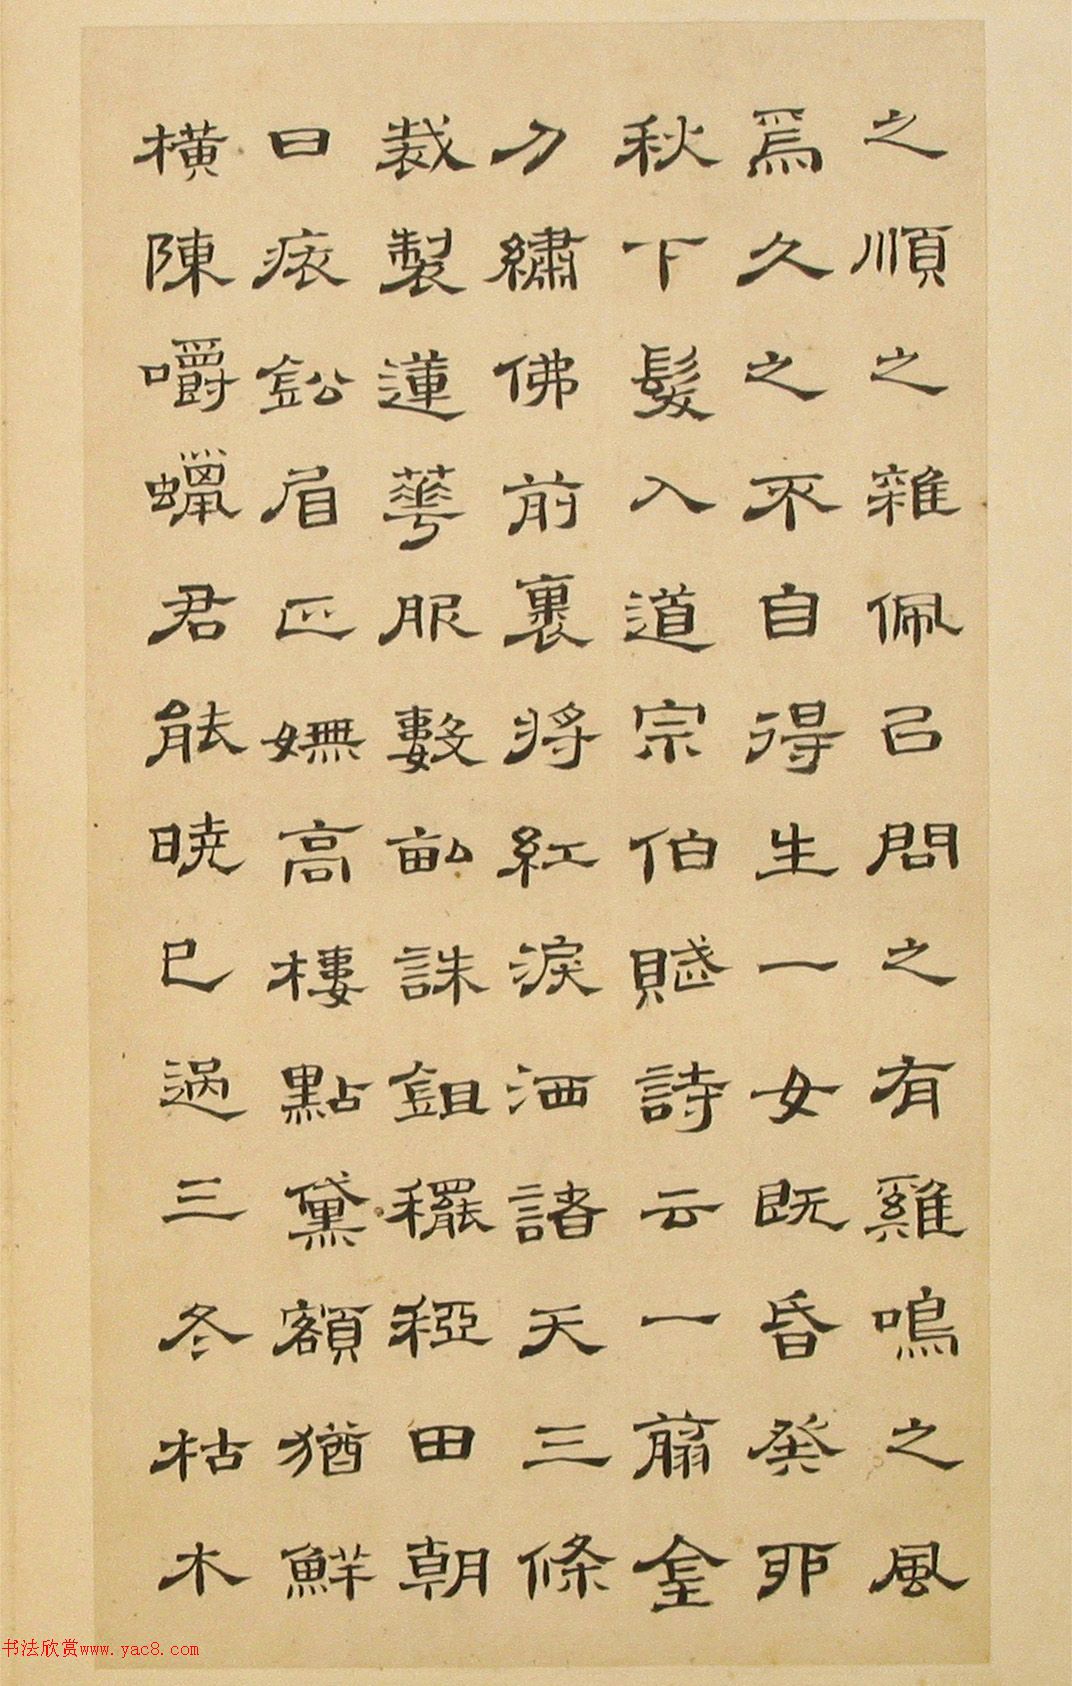 之順之雜佩已問之有雞鳴之風
焉久之不自得生一女既昏癸卯
秋下髮入道宗伯賦詩云一翦金
刀繡佛前裹將紅淚洒諸天三條
裁製蓮華服數畝誅鉏䆉稏田朝
日裝鉛眉正嫵高樓點黛額猶鮮
橫陳嚼蠟君能曉已過三冬枯木
书法欣赏www.yac8.com